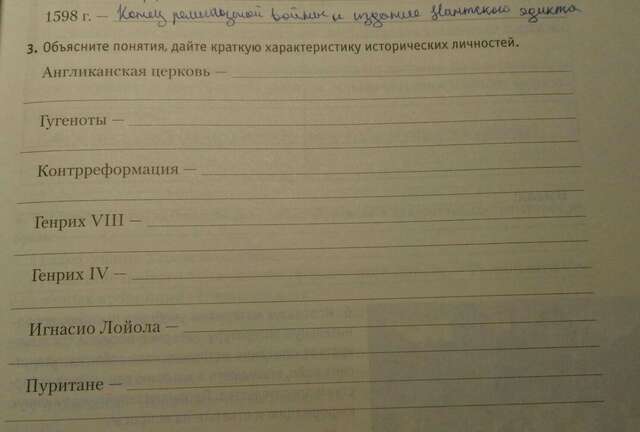 1598 г. — Конец религиозной войны и издание Нантского эдикта
3. Объясните понятия, дайте краткую характеристику исторических личностей.
Англиканская церковь —
Гугеноты —
Контрреформация —
Генрих VIII —
Генрих IV —
Игнасио Лойола —
Пуритане —